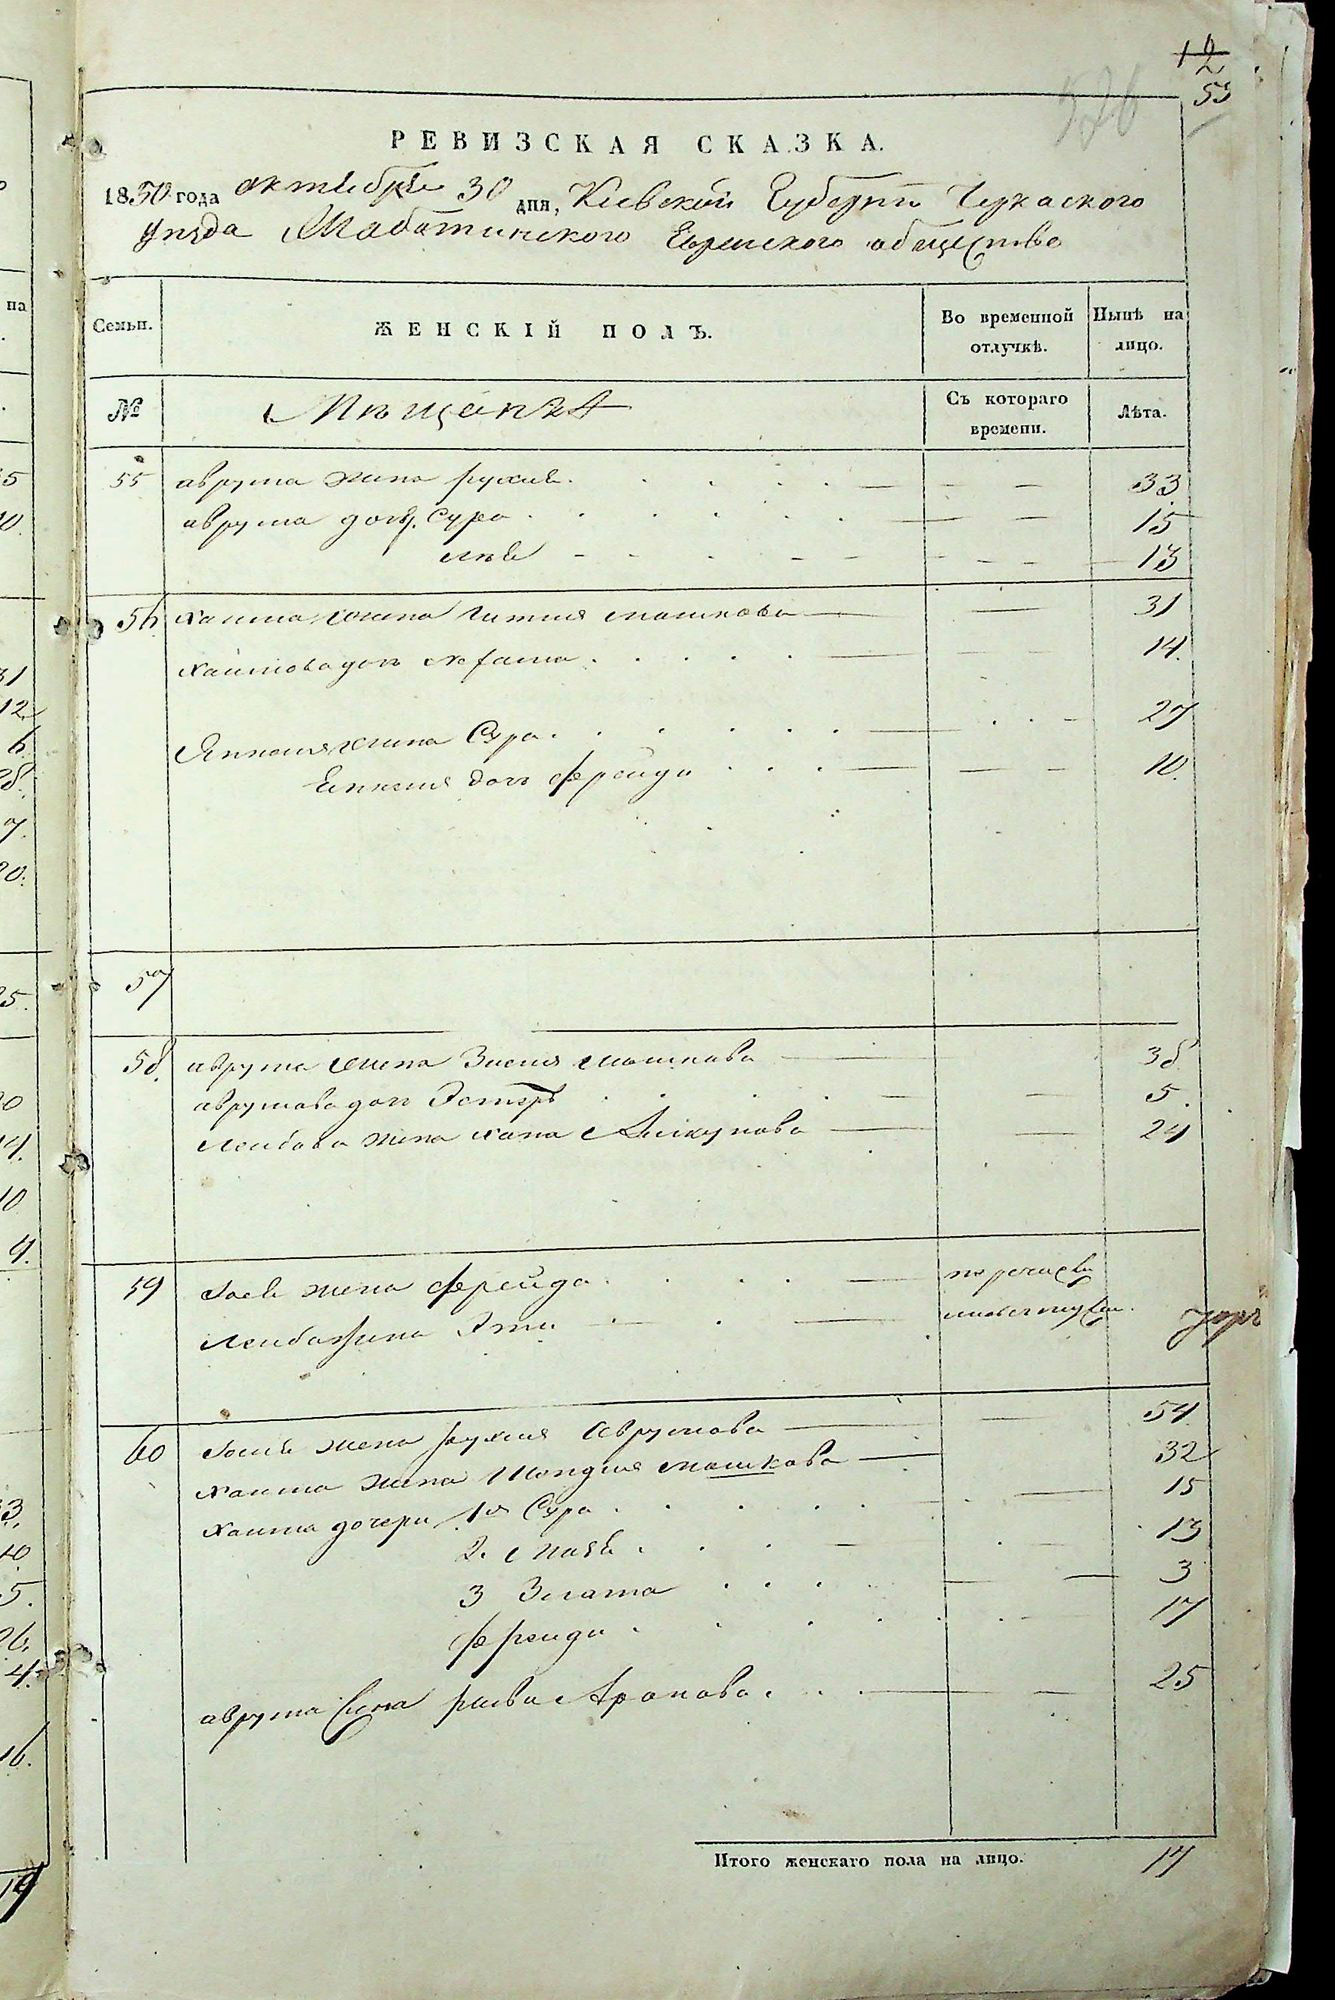 12
53
526
РЕВИЗСКАЯ СКАЗКА.
1850 года октября 30 дня, Киевской Губерніи Черкаского
уѣзда Еврейского общества
Семьи.
ЖЕНСКІЙ ПОЛЪ.
Во временной отлучкѣ.
Нынѣ на лицо.
№
Мѣщане
Съ котораго времени.
Лѣта.
55 аврума жена рухля 33
аврума доч. Сура 15
лея 13
56 хаима жена Гитля мошкова 31
хаимова доч 14.
жена Сура 27
доч фрейда 10.
57
58. аврума жена мошкова 38
аврумова доч Эстеръ 5.
лейбова жена хана 24
59 жена фрейда
лейба жена Эти
60 жена рухля Аврумова 54
хаима жена мошкова 32
хаима дочери 1я Сура 15
2. 13
3 Злата 3
фрейда 17
аврума рива Аронова 25
Итого женскаго пола на лицо. 17